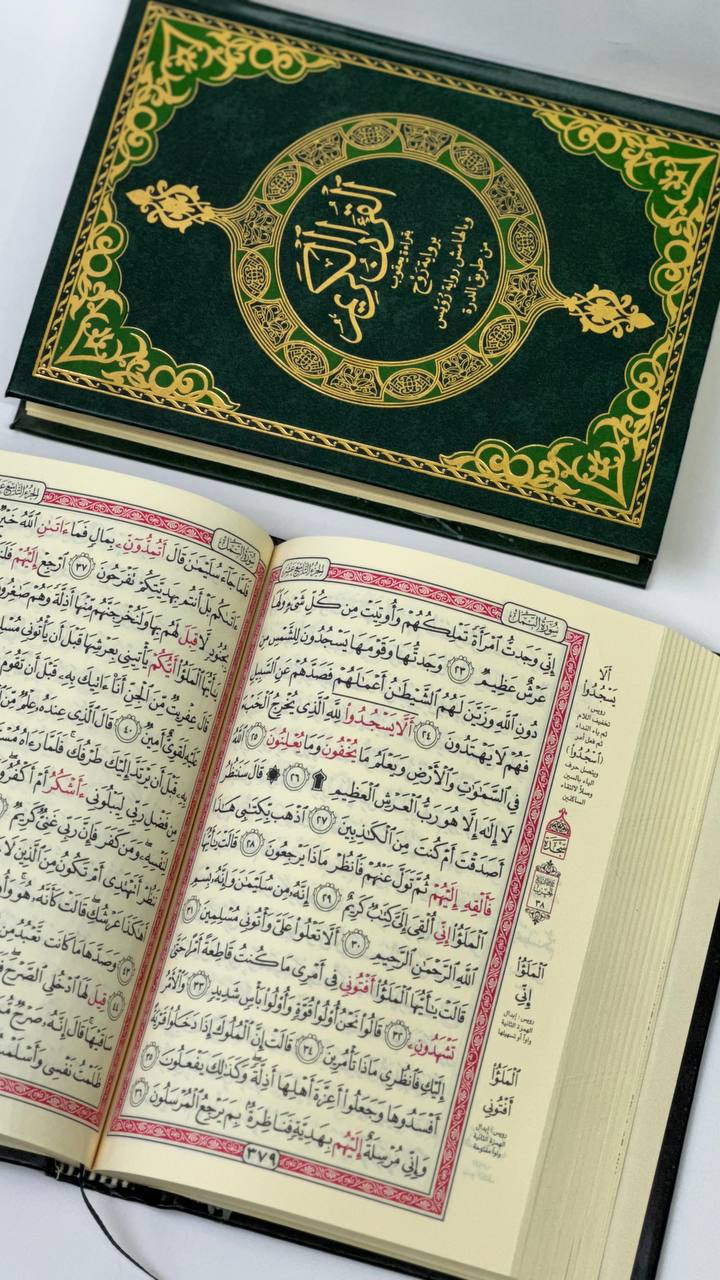 القرآن الكريم
بقراءة يعقوب
برواية روح
وبالهامش رواية رويس
من طريق الدرة
سورة النمل
الجزء التاسع عشر
إِنِّي وَجَدتُّ ٱمْرَأَةً تَمْلِكُهُمْ وَأُوتِيَتْ مِن كُلِّ شَىْءٍ وَلَهَا
عَرْشٌ عَظِيمٌ ٢٣ وَجَدتُّهَا وَقَوْمَهَا يَسْجُدُونَ لِلشَّمْسِ مِن
دُونِ ٱللَّهِ وَزَيَّنَ لَهُمُ ٱلشَّيْطَٰنُ أَعْمَٰلَهُمْ فَصَدَّهُمْ عَنِ ٱلسَّبِيلِ
فَهُمْ لَا يَهْتَدُونَ ٢٤ أَلَّا يَسْجُدُوا لِلَّهِ ٱلَّذِى يُخْرِجُ ٱلْخَبْءَ
فِى ٱلسَّمَٰوَٰتِ وَٱلْأَرْضِ وَيَعْلَمُ مَا يُخْفُونَ وَمَا يُعْلِنُونَ ٢٥ ٱللَّهُ
لَا إِلَٰهَ إِلَّا هُوَ رَبُّ ٱلْعَرْشِ ٱلْعَظِيمِ ۩ ٢٦ ۞ قَالَ سَنَنظُرُ
أَصَدَقْتَ أَمْ كُنتَ مِنَ ٱلْكَٰذِبِينَ ٢٧ ٱذْهَب بِّكِتَٰبِى هَٰذَا
فَأَلْقِهِ إِلَيْهُمْ ثُمَّ تَوَلَّ عَنْهُمْ فَٱنظُرْ مَاذَا يَرْجِعُونَ ٢٨ قَالَتْ يَٰٓأَيُّهَا
ٱلْمَلَؤُا إِنِّي أُلْقِىَ إِلَىَّ كِتَٰبٌ كَرِيمٌ ٢٩ إِنَّهُ مِن سُلَيْمَٰنَ وَإِنَّهُ بِسْمِ
ٱللَّهِ ٱلرَّحْمَٰنِ ٱلرَّحِيمِ ٣٠ أَلَّا تَعْلُوا عَلَىَّ وَأْتُونِى مُسْلِمِينَ ٣١
قَالَتْ يَٰٓأَيُّهَا ٱلْمَلَؤُا أَفْتُونِى فِى أَمْرِى مَا كُنتُ قَاطِعَةً أَمْرًا حَتَّىٰ
تَشْهَدُونِۦ ٣٢ قَالُوا نَحْنُ أُولُوا قُوَّةٍ وَأُولُوا بَأْسٍ شَدِيدٍ ٣٣ وَٱلْأَمْرُ
إِلَيْكِ فَٱنظُرِى مَاذَا تَأْمُرِينَ ٣٤ قَالَتْ إِنَّ ٱلْمُلُوكَ إِذَا دَخَلُوا قَرْيَةً
أَفْسَدُوهَا وَجَعَلُوا أَعِزَّةَ أَهْلِهَا أَذِلَّةً وَكَذَٰلِكَ يَفْعَلُونَ ٣٥
وَإِنِّى مُرْسِلَةٌ إِلَيْهُم بِهَدِيَّةٍ فَنَاظِرَةٌۢ بِمَ يَرْجِعُ ٱلْمُرْسَلُونَ ٣٦
٣٧٩
أَلَا
يَسْجُدُوا
رويس:
تخفيف اللام
ثم ياء النداء
ثم فعل أمر
(اسجدوا)
سجدة
٣٨
ٱلْمَلَؤُا
إِنِّي
رويس: إبدال
الهمزة الثانية
واواً أو تسهيلها
ٱلْمَلَؤُا
أَفْتُونِي
رويس: إبدال
الهمزة الثانية
واواً مفتوحة
سورة النمل
فَلَمَّا جَآءَ سُلَيْمَٰنَ قَالَ أَتُمِدُّونِّۦ بِمَالٍ فَمَآ ءَاتَىٰنِ ٱللَّهُ خَيْرٌ
بَلْ أَنتُم بِهَدِيَّتِكُمْ تَفْرَحُونَ ٣٧ ٱرْجِعْ إِلَيْهُمْ
لَّا قِبَلَ لَهُم بِهَا وَلَنُخْرِجَنَّهُم مِّنْهَآ أَذِلَّةً وَهُمْ صَٰغِرُونَ
يَٰٓأَيُّهَا ٱلْمَلَؤُا أَيُّكُمْ يَأْتِينِى بِعَرْشِهَا قَبْلَ أَن يَأْتُونِى
قَالَ عِفْرِيتٌ مِّنَ ٱلْجِنِّ أَنَا ءَاتِيكَ بِهِ قَبْلَ أَن تَقُومَ
عَلَيْهِ لَقَوِىٌّ أَمِينٌ ٤٠ قَالَ ٱلَّذِى عِندَهُ عِلْمٌ مِّنَ
بِهِ قَبْلَ أَن يَرْتَدَّ إِلَيْكَ طَرْفُكَ فَلَمَّا رَءَاهُ
مِن فَضْلِ رَبِّى لِيَبْلُوَنِى ءَأَشْكُرُ أَمْ أَكْفُرُ
لِنَفْسِهِ وَمَن كَفَرَ فَإِنَّ رَبِّى غَنِىٌّ كَرِيمٌ
نَنظُرْ أَتَهْتَدِى أَمْ تَكُونُ مِنَ ٱلَّذِينَ لَا
أَهَٰكَذَا عَرْشُكِ قَالَتْ كَأَنَّهُ هُوَ
٤٢ وَصَدَّهَا مَا كَانَت تَّعْبُدُ مِن
٤٤ قِيلَ لَهَا ٱدْخُلِى ٱلصَّرْحَ
سَاقَيْهَا قَالَ إِنَّهُ صَرْحٌ
ظَلَمْتُ نَفْسِى وَأَسْلَمْتُ